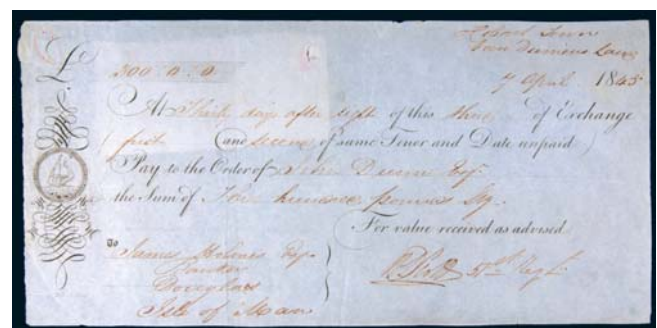 Hobart Town
Van Diemens Land
300.0.0
7 April 1845
At Thirty days after sight of this third of Exchange
(first and second of same Tenor and Date unpaid)
Pay to the Order of John Dunn Esq.
the Sum of hundred pounds Stg.
For value received as advised.
To James Holmes Esq.
Banker
Douglas
Isle of Man
51st Regt.